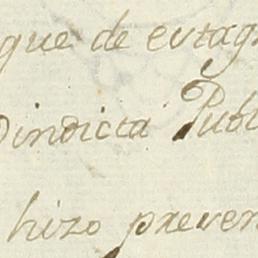 que de evtag
Vindicta Pub
hizo preven